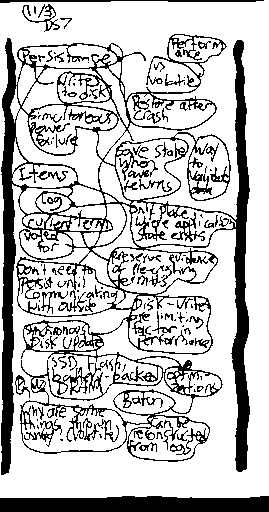 11/3
DS7
Persistance
Performance
vs
volatile
Write
to disk
Restore after
crash
Simultaneous
power
failure
Save state
when
power
returns
Way
to
Items
Log
current term
voted
for
Only place
where application
state exists
Preserve evidence
of
Don't need to
persist until
communicating
with outside
Disk-writes
are limiting
factor in
performance
Synchronous
Disk Update
SSD, Flash,
battery-backed
DRAM
optimi
zations
Batch
Why are some
things
(volatile)
Can be
reconstructed
from logs